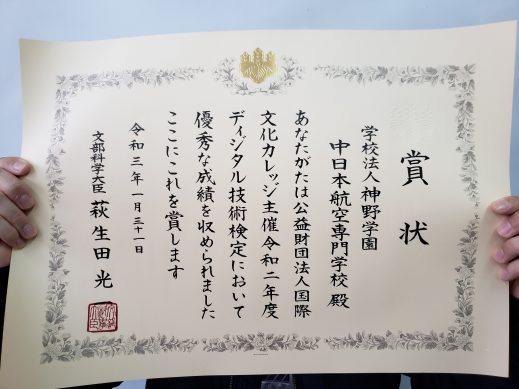 賞状
学校法人神野学園
中日本航空専門学校 殿
あなたがたは公益財団法人国際
文化カレッジ主催令和二年度
ディジタル技術検定において
優秀な成績を収められました
ここにこれを賞します
令和三年一月三十一日
文部科学大臣 萩生田光